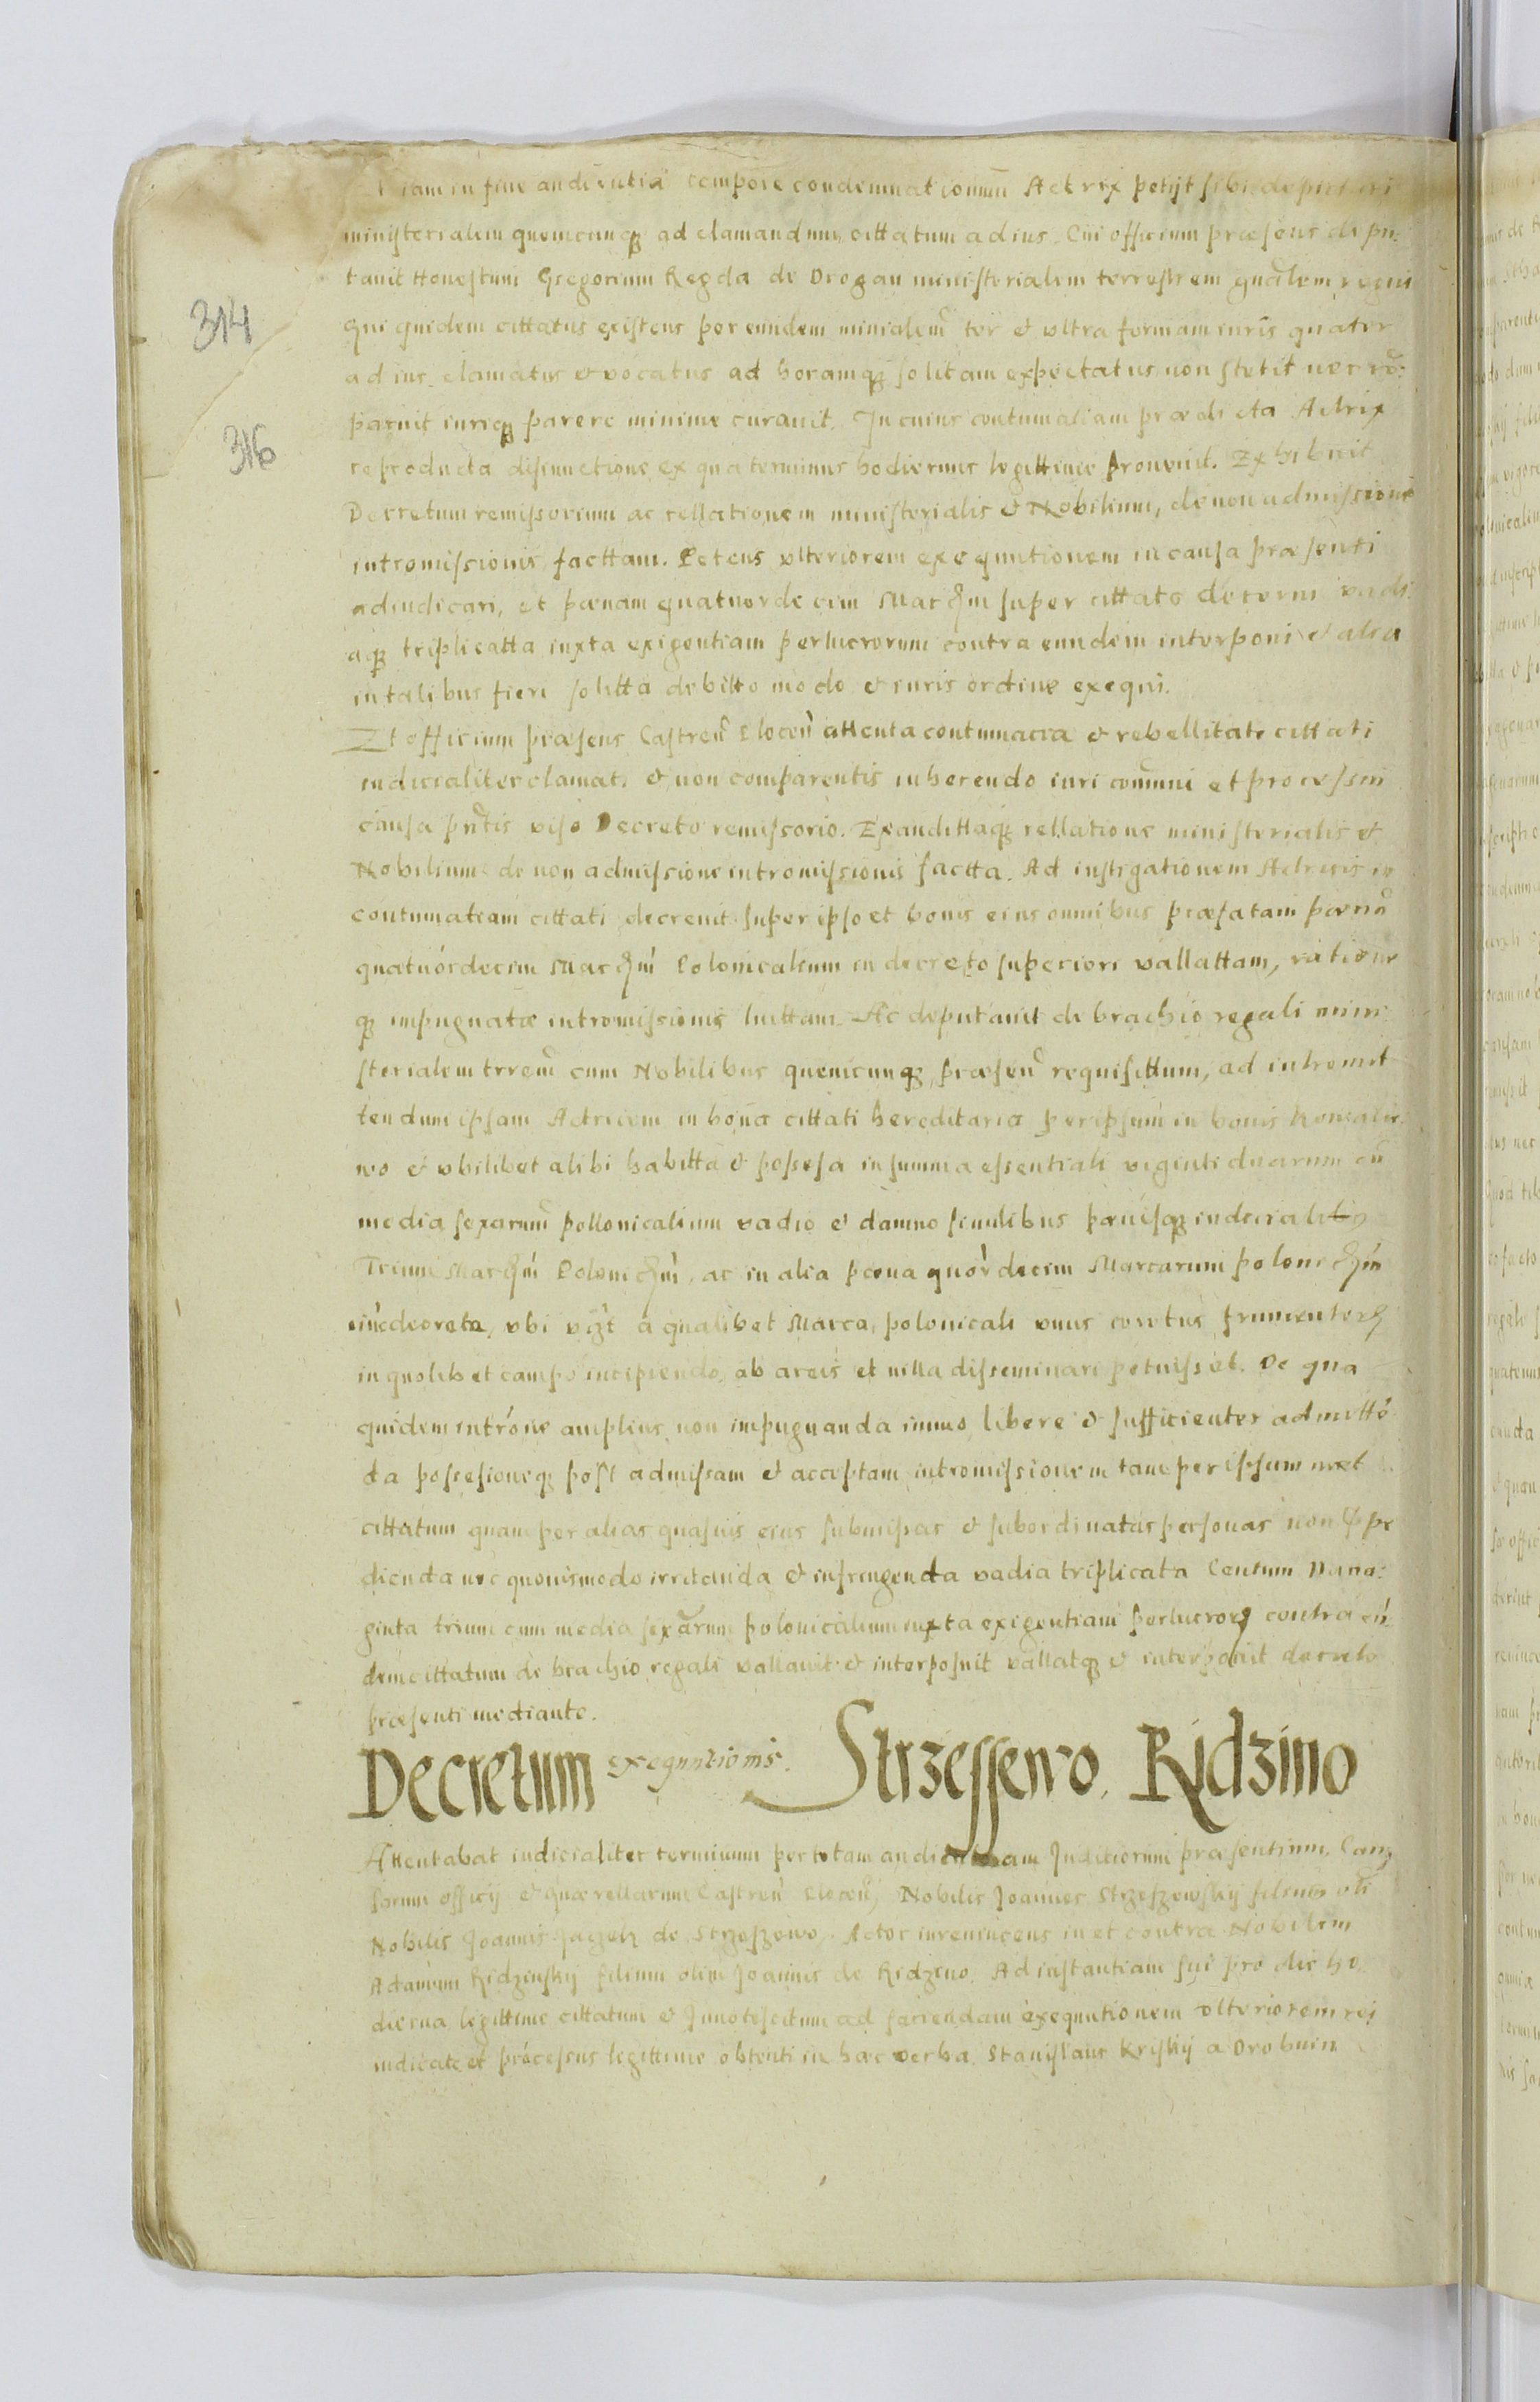 iam in fine audientiæ tempore condemnationum Actrix petijt sibi deputari
ministerialem quemcunq₃ ad clamandum cittatum ad ius. Cui officium præsens depu:
tauit Honestum Gregorium Regda de Drogan ministerialem terrestrem gnalem regni
qui quidem cittatus existens per eundem minialem ter et vltra formam iuris quater
ad ius clamatus et vocatus ad horamq₃ solitam expectatus non stetit nec
paruit iuriq₃ parere minime curauit. In cuius contumatiam prædicta Actrix
reproducta disiunctione ex qua terminus hodiernus legittime prouenit. Exhibuit
Decretum remissorium ac rellationem ministerialis et Nobilium, de non admissione
intromissionis facttam. Petens vlteriorem exequutionem in causa præsenti
adiudicari, et pænam quatuordecim Marcarum super cittato decerni vadi:
aq₃ triplicatta iuxta exigentiam perlucrorum contra eundem interponi et alia
in talibus fieri solitta debitto modo et iuris ordine exequi.
Et officium præsens Castren Plocen attenta contumacia et rebellitate cittati
iudicialiter clamati et non comparentis inherendo iuri communi et processui
causæ pntis viso Decreto remissorio. Exaudittaq₃ rellatione ministerialis et
Nobilium de non admissione intromissionis factta. Ad instigationem Actricis in
contumatiam cittati decreuit super ipso et bonis eius omnibus præfatam pænam
quatuordecim Marcarum Polonicalium in decreto superiori vallattam, ratione
q₃ impugnatæ intromissionis luittam. Ac deputauit de brachio regali mini
sterialem trrem cum Nobilibus quemcunq₃ præsen requisittum, ad intromit
tendum ipsam Actricem in bona cittati hereditaria per ipsum in bonis
wo et vbilibet alibi habitta et possesa in summa essentiali viginti duarum cu
media sexarum pollonicalium vadio et damno similibus pænisq₃ iudicialib₉
Trium Marcarum Polonicarum, ac in alia pæna quordecim Marcarum polonicarum
decreta, vbi vzt a qualibet Marca, polonicali vnus coretus frumentor
in quolibet campo incipiendo ab areis et villa disseminari potuisset. De qua
quidem introne amplius non impugnanda immo libere et sufficienter admitte
da possesioneq₃ post admissam et acceptam intromissionem tam per ipsummet
cittatum quam per alias quasuis eius submissas et subordinatas personas non
dienda nec quouismodo irritanda et infringenda vadia triplicata Centum Nona:
ginta trium cum media sexarum polonicalium iuxta exigentiam perlucror contra eu
dem cittatum de brachio regali vallauit et interposuit vallatq₃ et interponit decreto
præsenti mediante.
Decretum exequutionis. Strzessewo. Ridzino
Attentabat iudicialiter terminum per totam audientiam Juditiorum præsentium, Cau
sarum officij et quærellarum Castren Plocen, Nobilis Joannes Strzeszewskij filius oli
Nobilis Joannis de Strzeszewo. Actor iureuincens in et contra Nobilem
Adamum Ridzinskij filium olim Joannis de Ridzino. Ad instantiam sui pro die ho
dierna legittime cittatum et Innotescitum ad faciendam exequutionem vlteriorem rei
iudicatæ et processus legittime obtenti in hæc verba. Stanislaus Kriskij a Drobnin